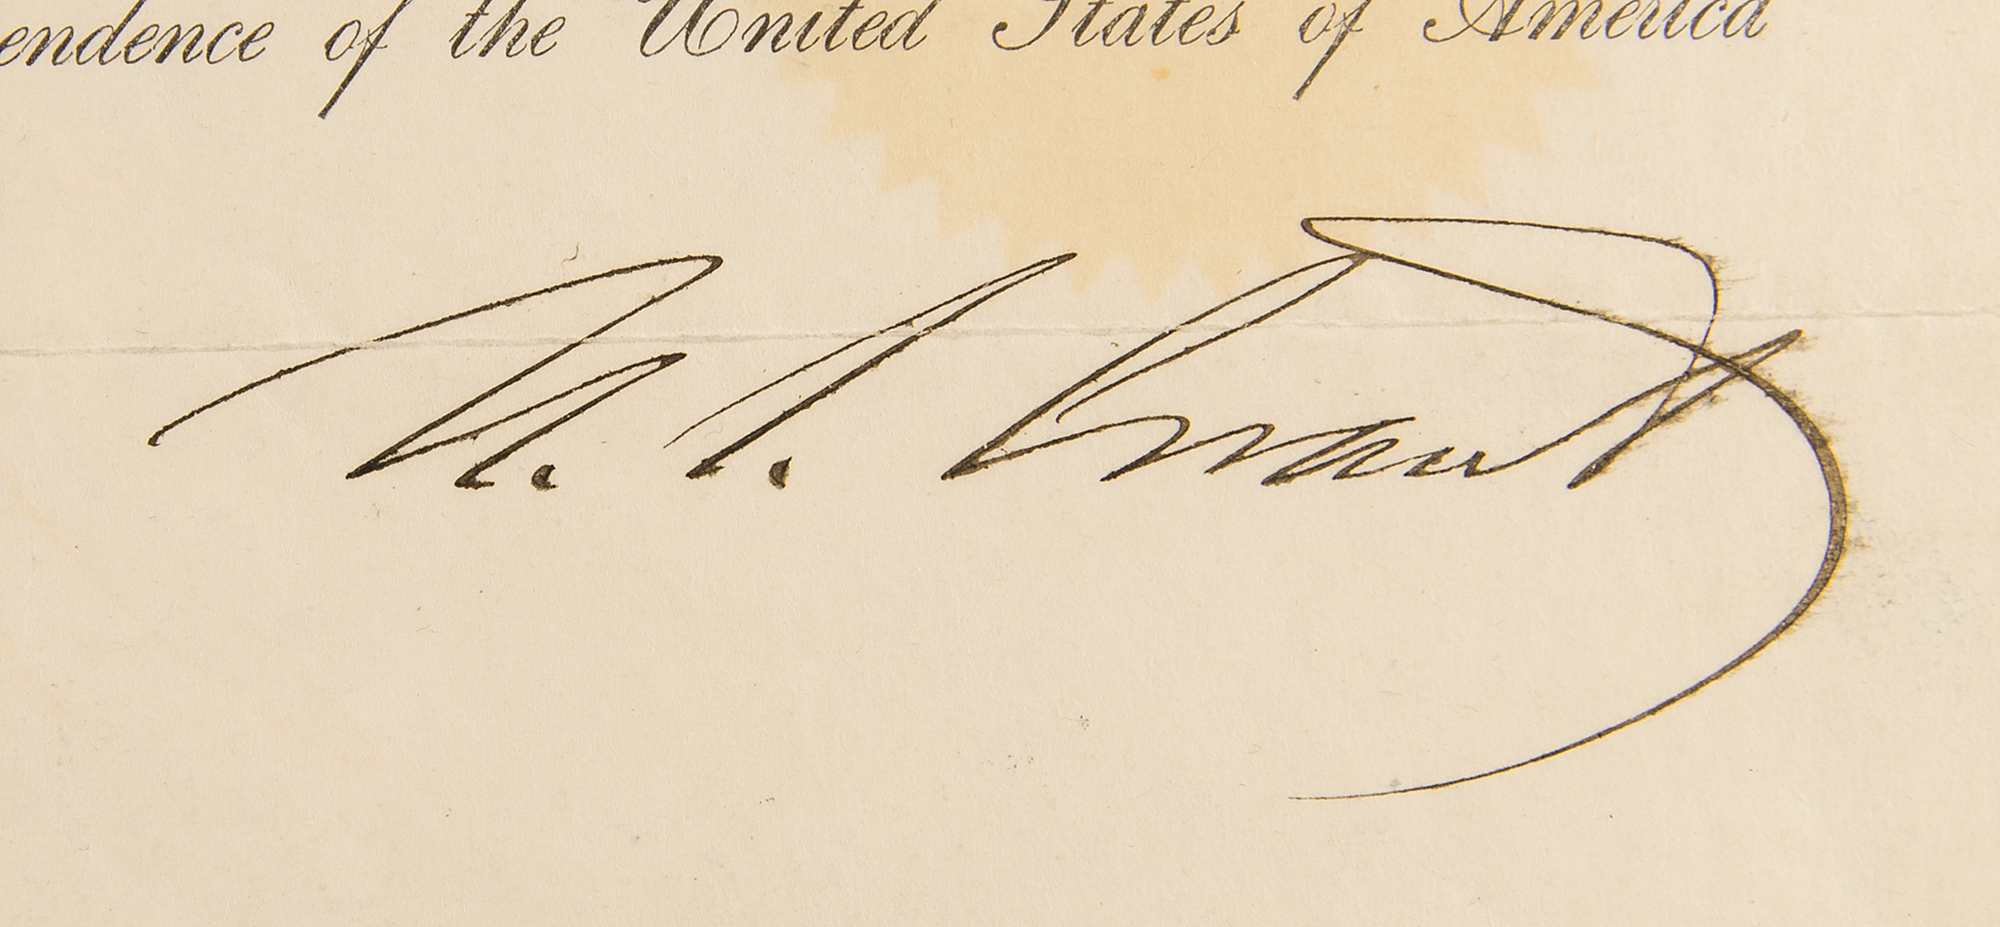 endence of the United States of America
U. S. Grant